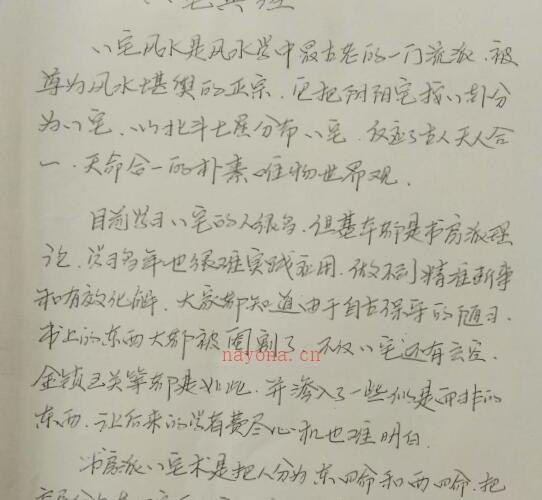 八宅真经
八宅风水是风水学中最古老的一门流派、被
尊为风水堪舆的正宗、它把阴阳宅按八卦分
为八宅、以北斗七星分布八宅、反应了古人天人合
一、天命合一的朴素唯物世界观.
目前学习八宅的人很多、但基本都是书房派理
论、学习多年也很难实践应用、做不到精准断事
和有效化解、大家都知道由于自古保守的陋习、
书上的东西大都被阉割了、不仅八宅还有玄空、
金锁玉关等都是如此、并渗入了一些似是而非的
东西、让后来的学者费尽心机也难明白.
nayona.cn
书房派八宅术是把人分为东四命和西四命、把